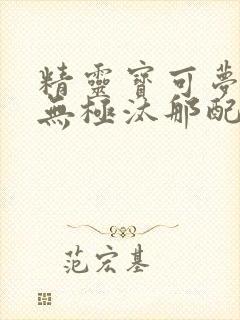 精靈寶可夢
無極汰那配
范宏基